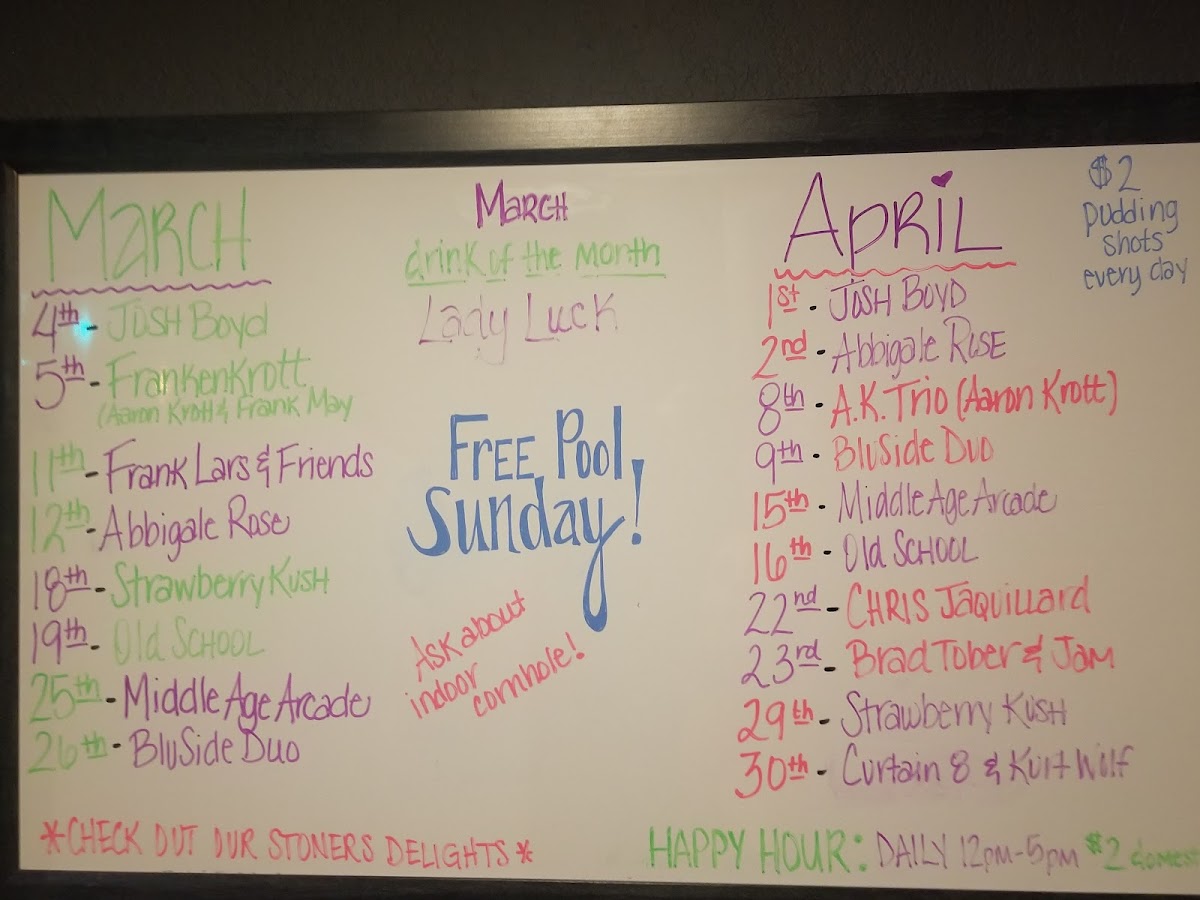 March
4th - Josh Boyd
5th - FrankenKrott
(Aaron Krott & Frank May
11th - Frank Lars & Friends
12th - Abbigale Rose
18th - Strawberry Kush
19th - Old School
25th - Middle Age Arcade
26th - BluSide Duo
*CHECK OUT OUR STONERS DELIGHTS*
March
drink of the Month
Lady Luck
Free Pool
Sunday!
Ask about
indoor
cornhole!
April
1st - Josh Boyd
2nd - Abbigale Rose
8th - A.K. Trio (Aaron Krott)
9th - BluSide Duo
15th - Middle Age Arcade
16th - Old School
22nd - Chris Jaquillard
23rd - Brad Tober & Jam
29th - Strawberry Kush
30th - Curtain 8 & Kurt Wolf
$2
pudding
shots
every day
HAPPY HOUR: DAILY 12pm-5pm $2 domest